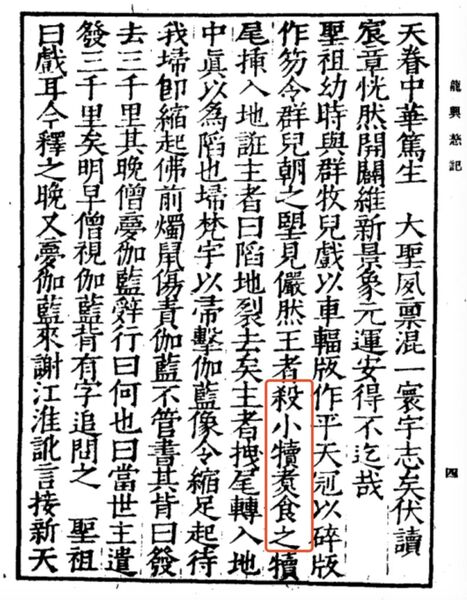 天眷中華篤生　大聖夙稟混一寰宇志矣伏讀
宸章恍然開闢維新景象元運安得不迄哉
聖祖幼時與群牧兒戲以車輻版作平天冠以碎版
作笏令群兒朝之望見儼然王者殺小犢煮食之犢
尾揷入地誑主者曰陷地裂去矣主者拽尾轉入地
中眞以爲陷也埽梵宇以帚擊伽藍像令縮足起待
我埽卽縮起佛前燭鼠傷責伽藍不管書其背曰發
去三千里其晚僧憂伽藍辤行曰何也曰當世主遣
發三千里矣明早僧視伽藍背有字追問之　聖祖
曰戲耳今釋之晚又憂伽藍來謝江淮訛言接新天
龍興慈記
四